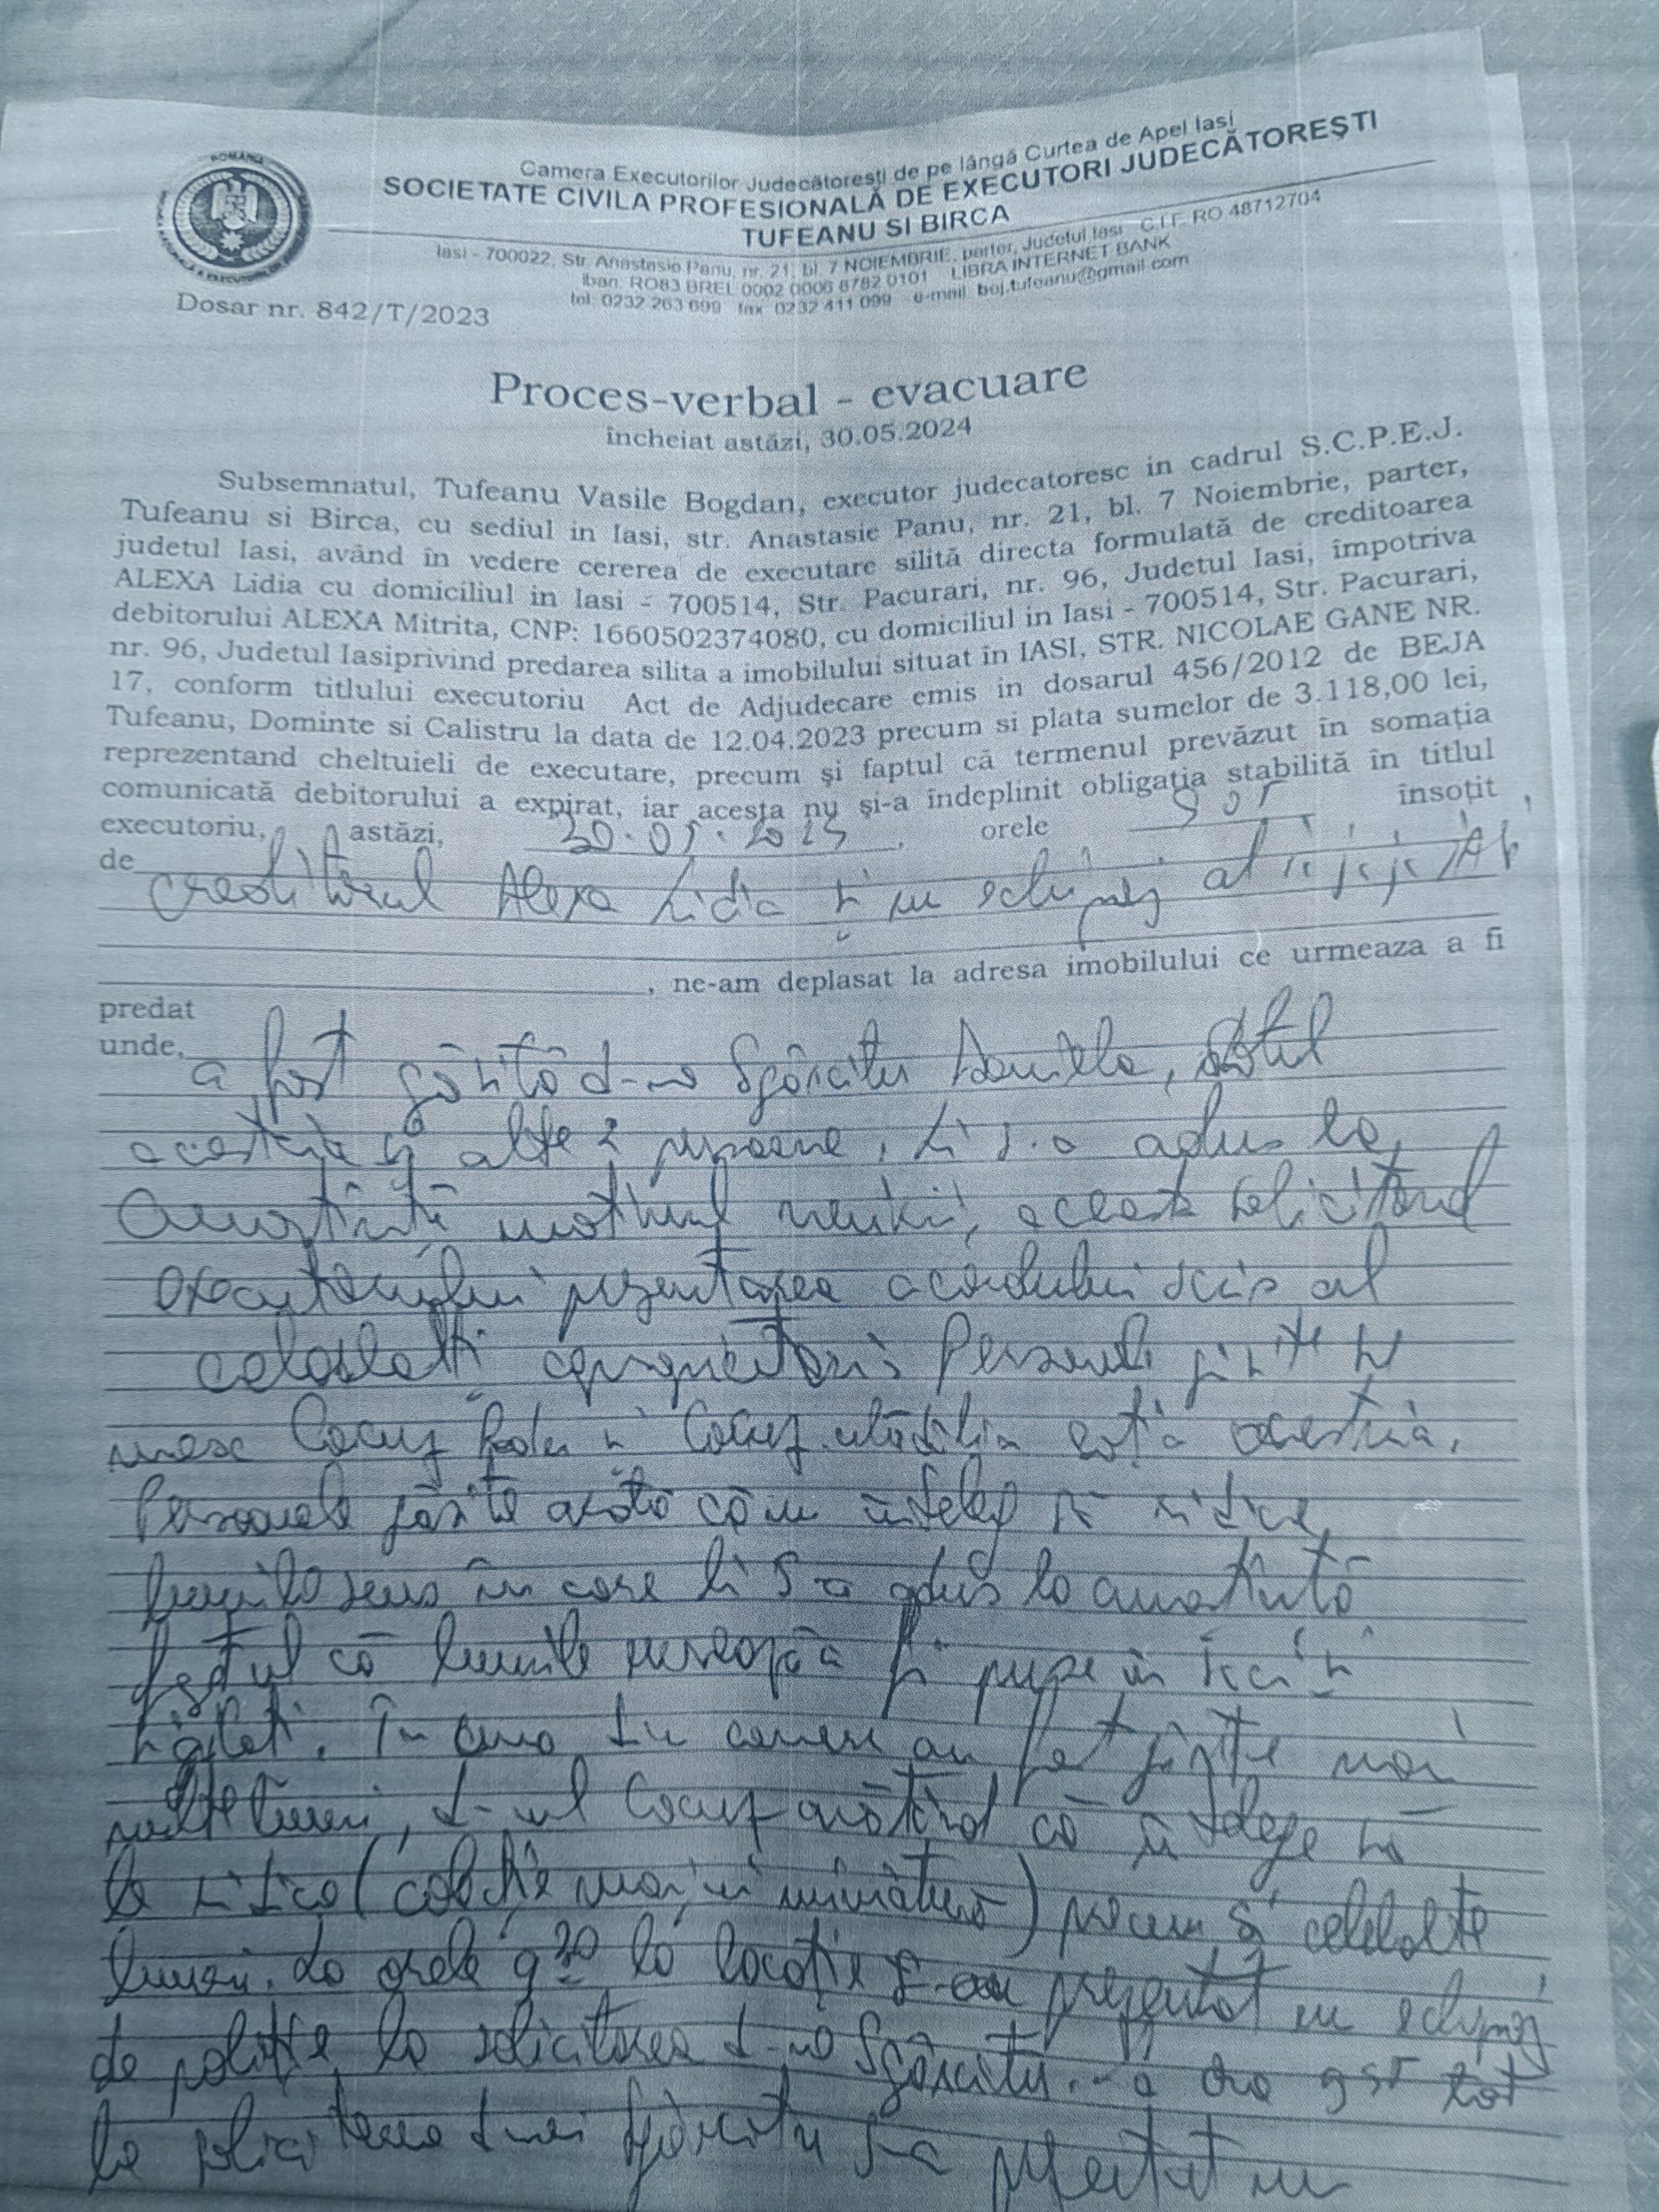 ROMANIA
Camera Executorilor Judecătoreşti de pe lângă Curtea de Apel Iasi
SOCIETATE CIVILA PROFESIONALĂ DE EXECUTORI JUDECĂTOREŞTI
TUFEANU SI BIRCA
Iasi - 700022, Str. Anastasie Panu, nr. 21, bl. 7 NOIEMBRIE, parter, Judetul Iasi C.I.F. RO 48712704
iban: RO83 BREL 0002 0006 8782 0101 LIBRA INTERNET BANK
tel: 0232 263 699 fax 0232 411 099 e-mail: bej.tufeanu@gmail.com
Dosar nr. 842/T/2023
Proces-verbal - evacuare
încheiat astăzi, 30.05.2024
Subsemnatul, Tufeanu Vasile Bogdan, executor judecatoresc in cadrul S.C.P.E.J.
Tufeanu si Birca, cu sediul in Iasi, str. Anastasie Panu, nr. 21, bl. 7 Noiembrie, parter,
judetul Iasi, având în vedere cererea de executare silită directa formulată de creditoarea
ALEXA Lidia cu domiciliul in Iasi - 700514, Str. Pacurari, nr. 96, Judetul Iasi, împotriva
debitorului ALEXA Mitrita, CNP: 1660502374080, cu domiciliul in Iasi - 700514, Str. Pacurari,
nr. 96, Judetul Iasiprivind predarea silita a imobilului situat în IASI, STR. NICOLAE GANE NR.
17, conform titlului executoriu Act de Adjudecare emis in dosarul 456/2012 de BEJA
Tufeanu, Dominte si Calistru la data de 12.04.2023 precum si plata sumelor de 3.118,00 lei,
reprezentand cheltuieli de executare, precum şi faptul că termenul prevăzut în somaţia
comunicată debitorului a expirat, iar acesta nu şi-a îndeplinit obligaţia stabilită în titlul
executoriu, astăzi, 30.05.2024, orele 9 05 însoţit
de creditorul Alexa Lidia și un echipaj al
, ne-am deplasat la adresa imobilului ce urmeaza a fi
predat
unde, a fost găsită d-na Sgârcitu Daniela, soțul
acesteia și alte 2 persoane, Li s-a adus la
cunoștință motivul venirii, aceasta solicitând
executorului prezentarea acordului scris al
celorlalți coproprietari. Persoanele găsite se
numesc Cocuz și Cocuz soția acestuia.
Persoanele găsite arată că nu înțeleg să ridice
bunurile sens în care li s-a adus la cunoștință
faptul că bunurile urmează a fi puse în saci și
găleți. În una din camere au fost găsite mai
multe bunuri, d-ul Cocuz arătând că înțelege să
le ridice (colecție mașini miniatură) precum și celelalte
bunuri. La orele 9 30 la locație s-au prezentat un echipaj
de poliție la solicitarea d-na Sgârcitu. La ora 9 55 tot
la solicitarea d-nei Sgârcitu s-a prezentat un